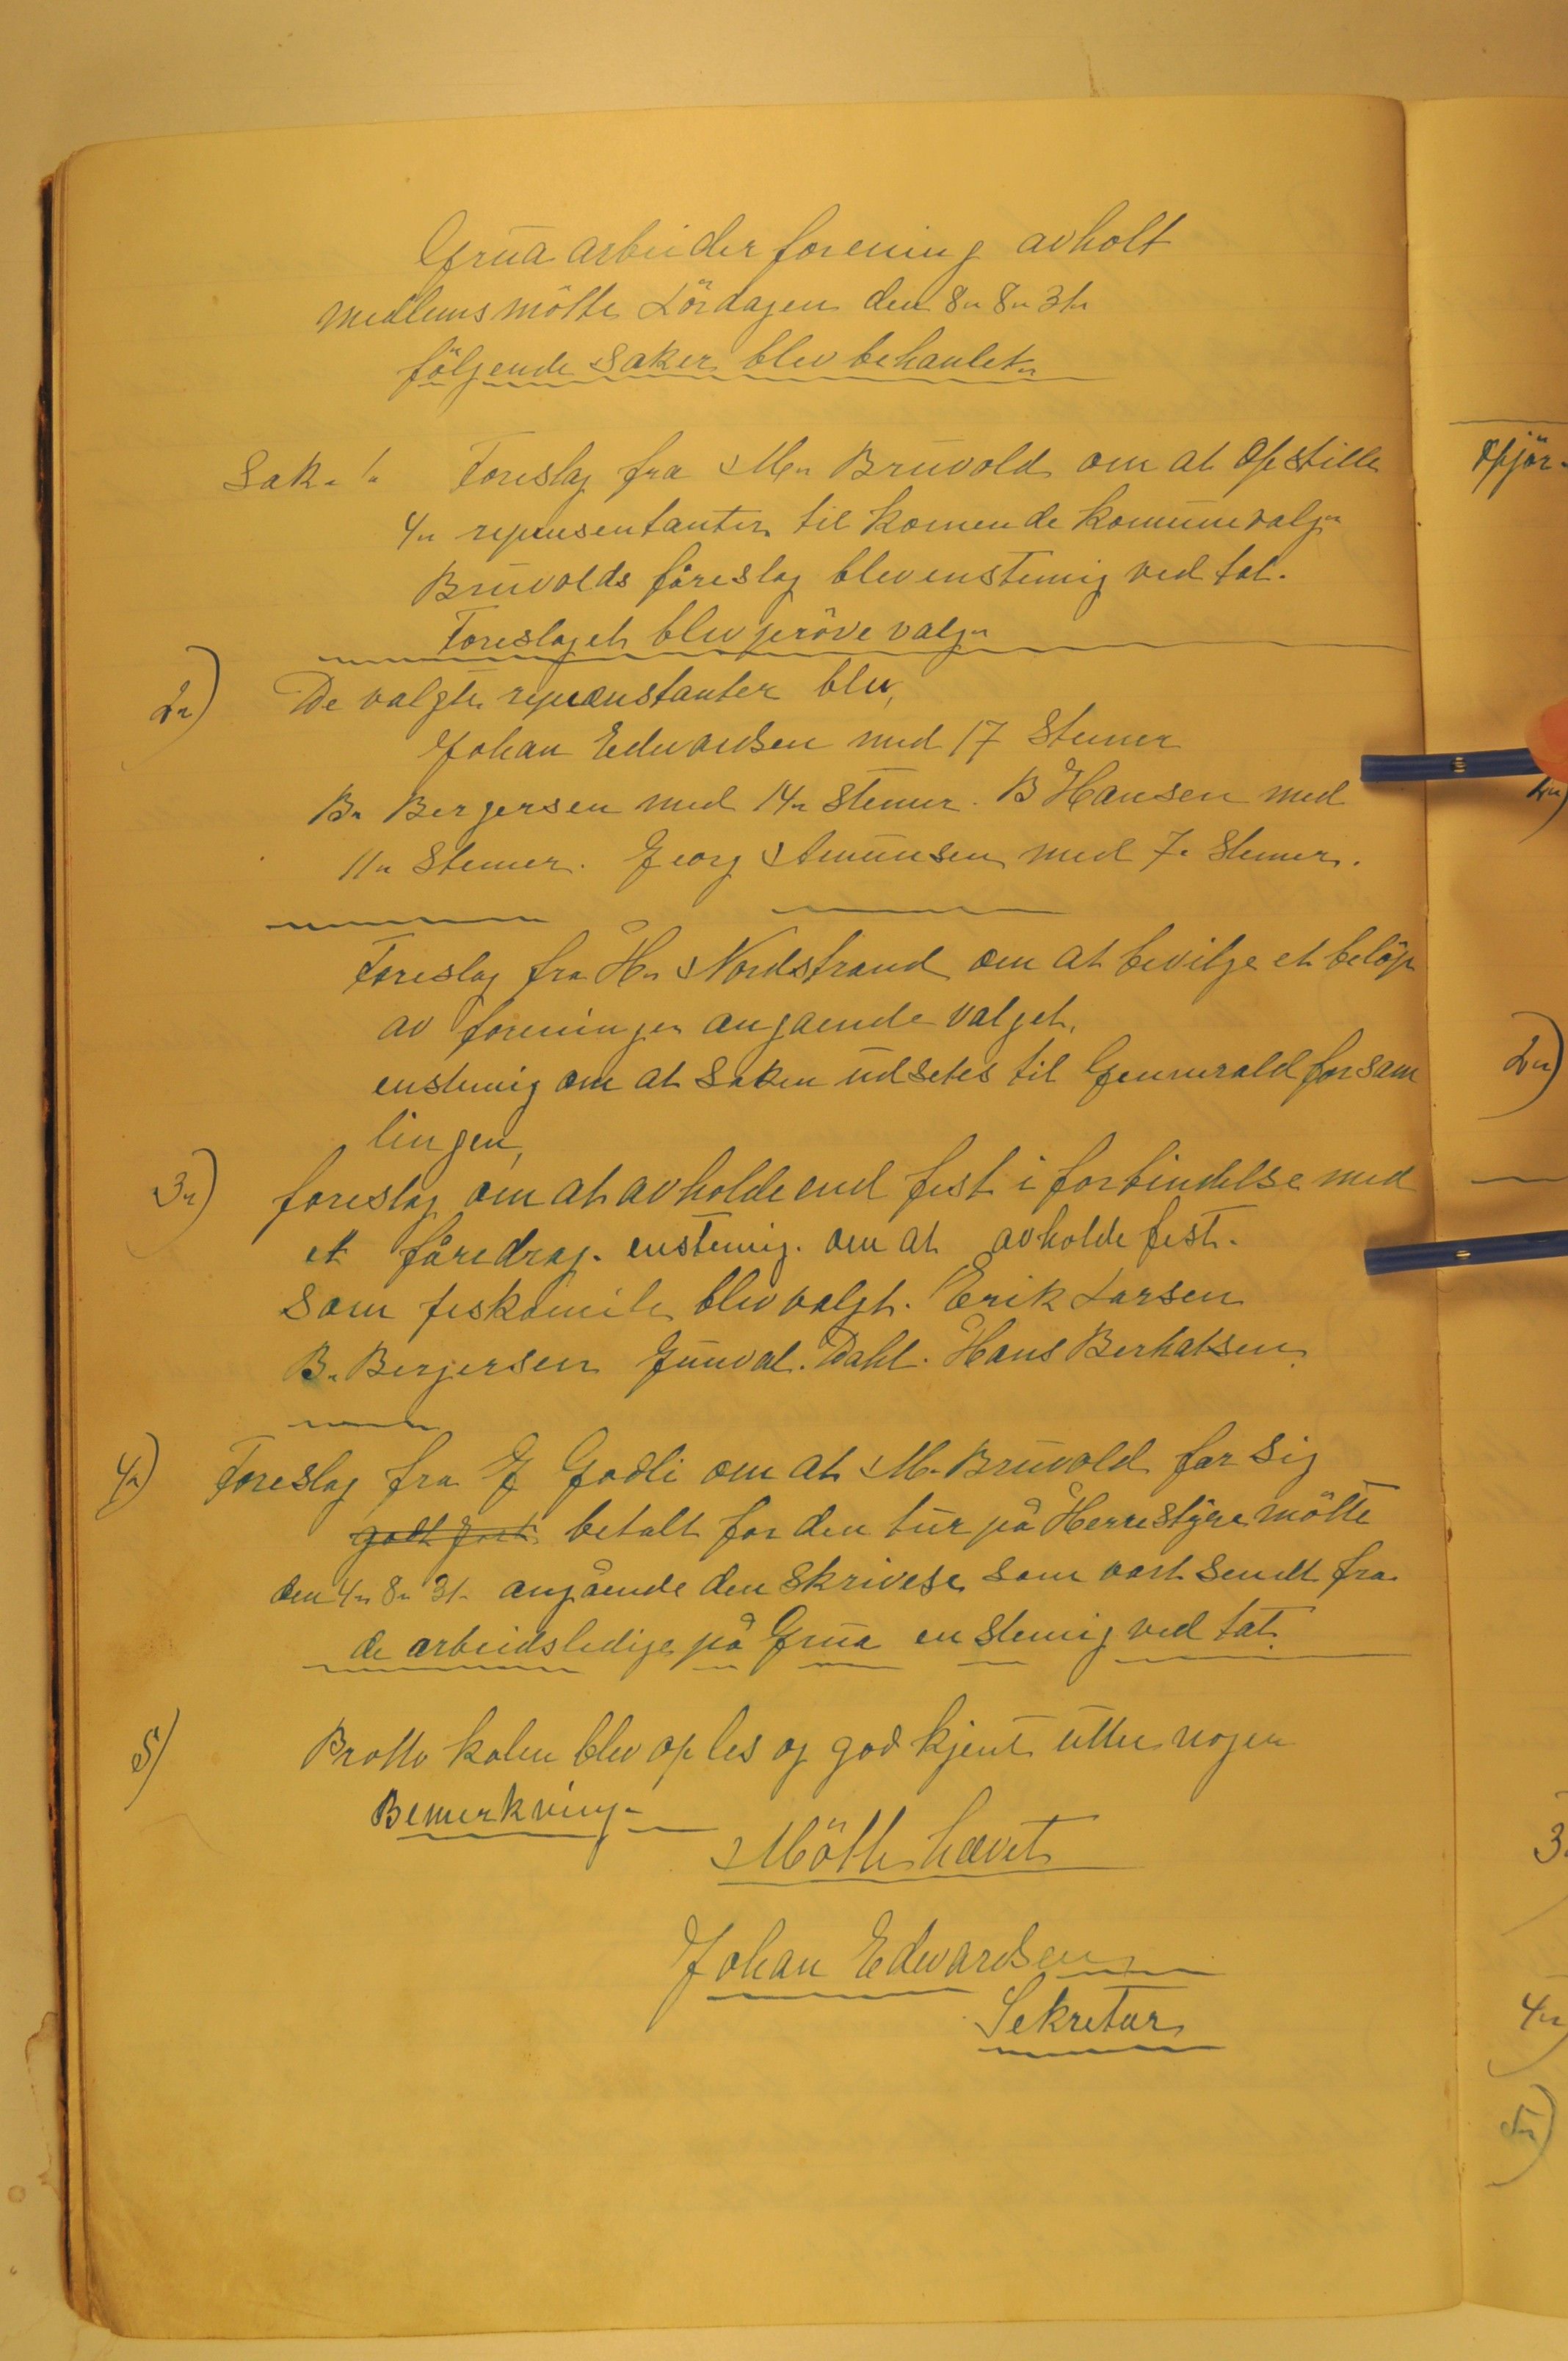 Grua arbeider forening avholt
medlems mötte Lördagen den 8- 8- 31-
fölgende Saker blev behanlet-
Sak- 1- Foreslag fra M- Bruvold om at Opstille
4- represententanter til komende komunevalg-
Bruvolds fåreslag blev enstemig ved tat.
Foreslaget blev pröve valg-
2-) De valgte repræenstanter blev,
Johan Edwardsen med 17 Stemer
B- Bergersen med 14- Stemer. B Hansen med
11- Stemer. Georg Amunsen med 7- Stemer.
Foreslag fra H- Nordstrand om at bevilge et belöp
av foreningen angaende valget,
enstemig om at Saken udsetes til Gennerald forsam
lingen,
3-) foreslag om at avholde end fest i forbindelse med
et fåredrag. enstemig. om at avholde fest.
Som feskomite blev valgt. Erik Larsen
B. Bergersen Gunval. Dahl. Hans Berhatsen.
4-) Foreslag fra J Godli om at M- Bruvold får sig
betalt for den tur på Herrestyremötte
den 4- 8- 31- angående den skrivese som vart sendt fra
de arbeidsledige på Grua en stemig ved tat.
5) Protto kolen blev op les og god kjent utten nogen
Bemerkning-
Mötte hævet
Johan Edwardsen
Sekretær
Opjör-
4-)
2-)
3-
4-
5-)